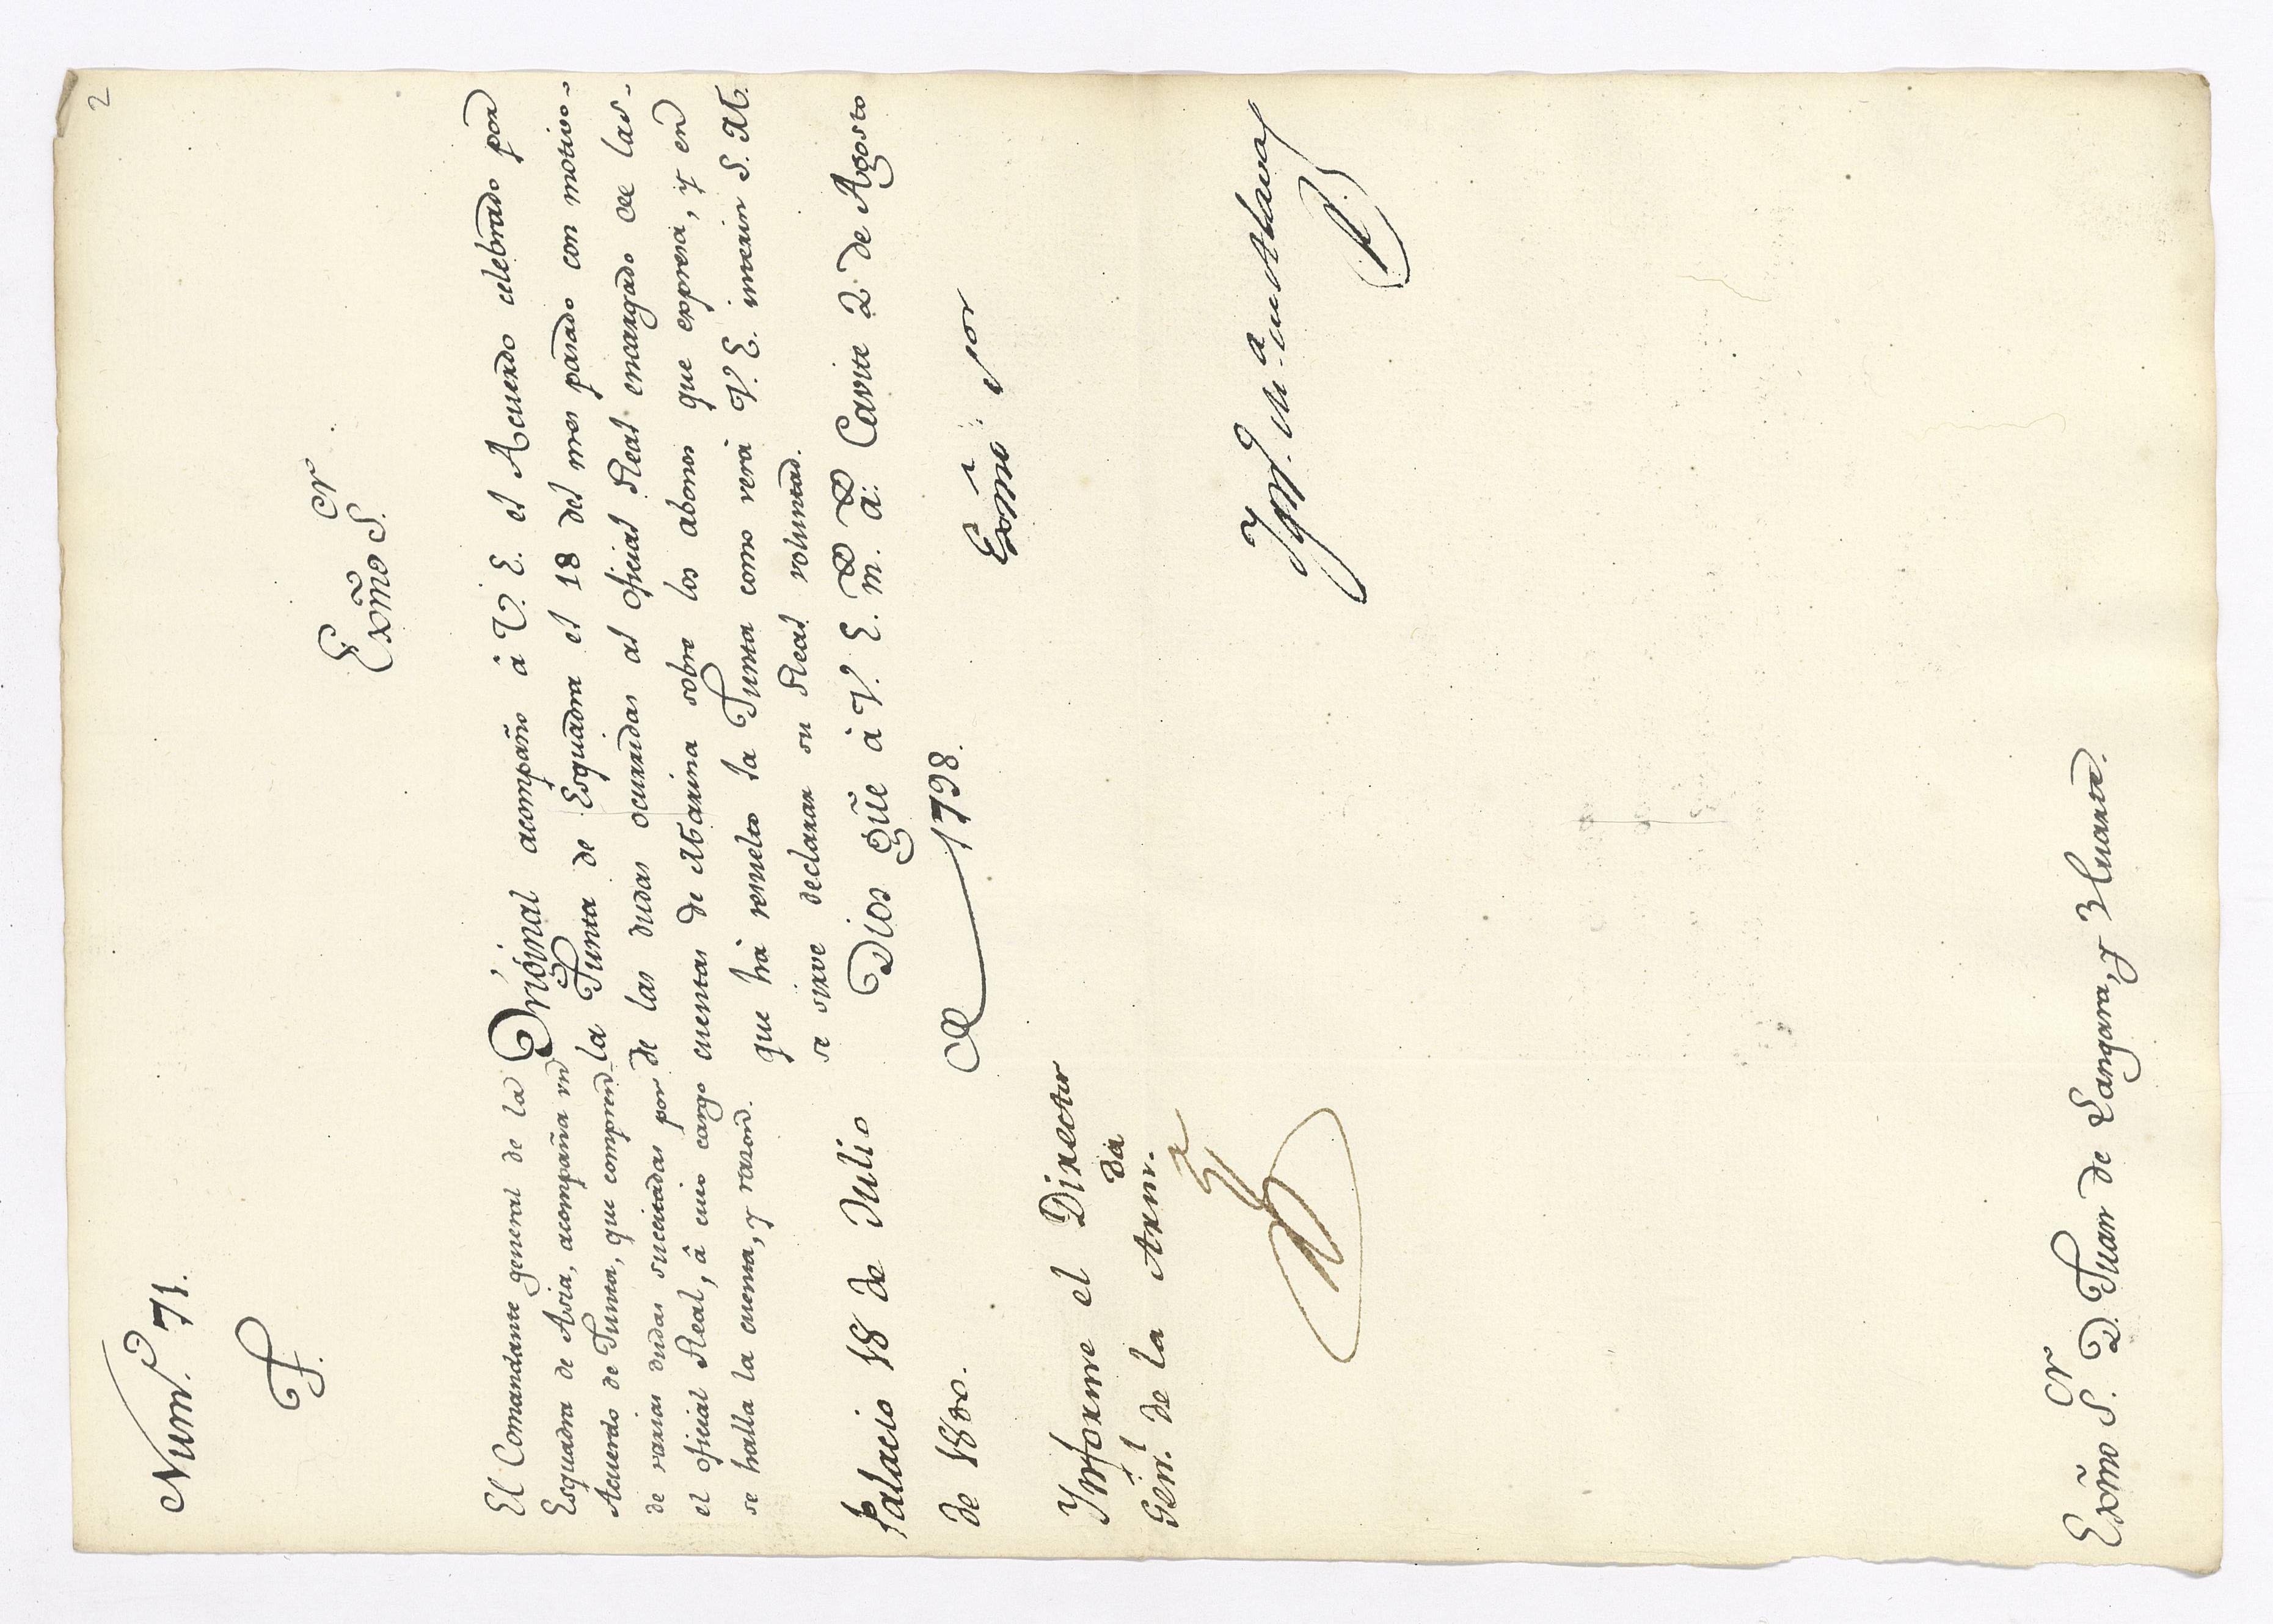 2
Num.º 71.
F.
Exmõ S.or
El Comandante general de la
Esquadra de Asia, acompaña un
Acuerdo de Junta, que comprende
de varias dudas suscitadas por
el oficial Real, â cuio cargo
se halla la cuenta, y razon.
Palacio 18 de Julio
de 1800.
Informe el Director
Gen.l de la Arm.da
Original acompaño â V. E. el Acuerdo celebrado por
la Junta de Esquadra el 18 del mes pasado con motivo
de las dudas ocurridas al oficial Real encargado de las
cuentas de Marina sobre los abonos que expresa, y en
que hà resuelto la Junta como verà V. E. interin S. M.
se sirve declarar su Real voluntad.
Dios gũe à V. E. m. a. Cavite 2 de Agosto
de 1798.
Exmõ sor
Ygn.o M.a de Alava
Exmõ S.or D. Juan de Langara, y Huarte.